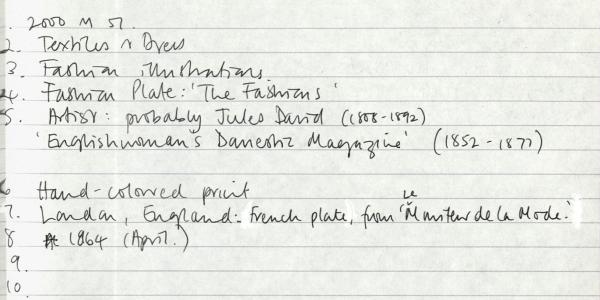 1. 2000 M 51.
2. Textiles & Dress
3. Fashion illustrations.
4. Fashion Plate: 'The Fashions'
5. Artist: probably Jules David (1808-1892)
'Englishwoman's Domestic Magazine' (1852-1877)
6 Hand-coloured print
7. London, England: French plate, from 'Le Moniteur de la Mode.'
8 1864 (April.)
9.
10